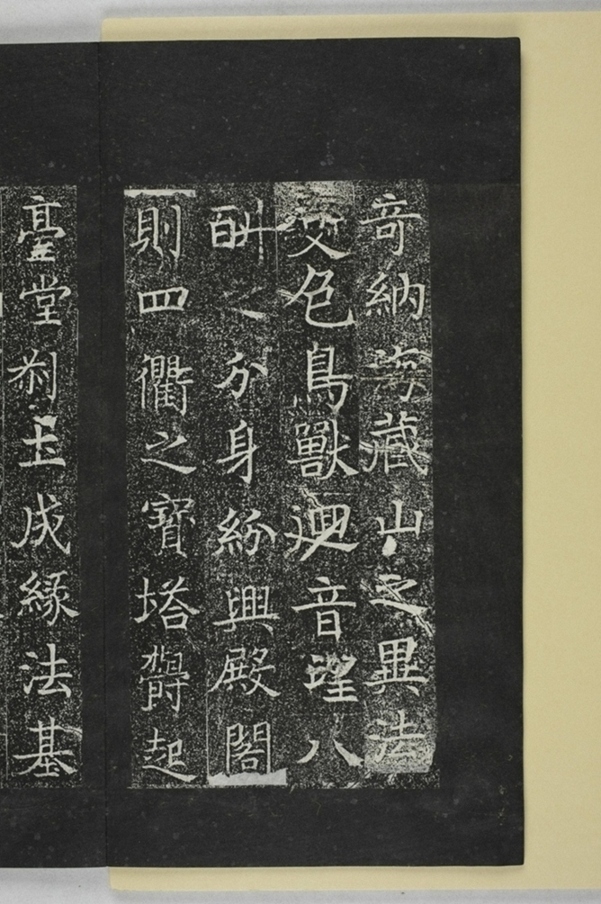 奇納海藏山之異法
色鳥獸迴音八
之分身紛興殿閣
則四衢之寶塔欝起
臺堂刹土成緣法基